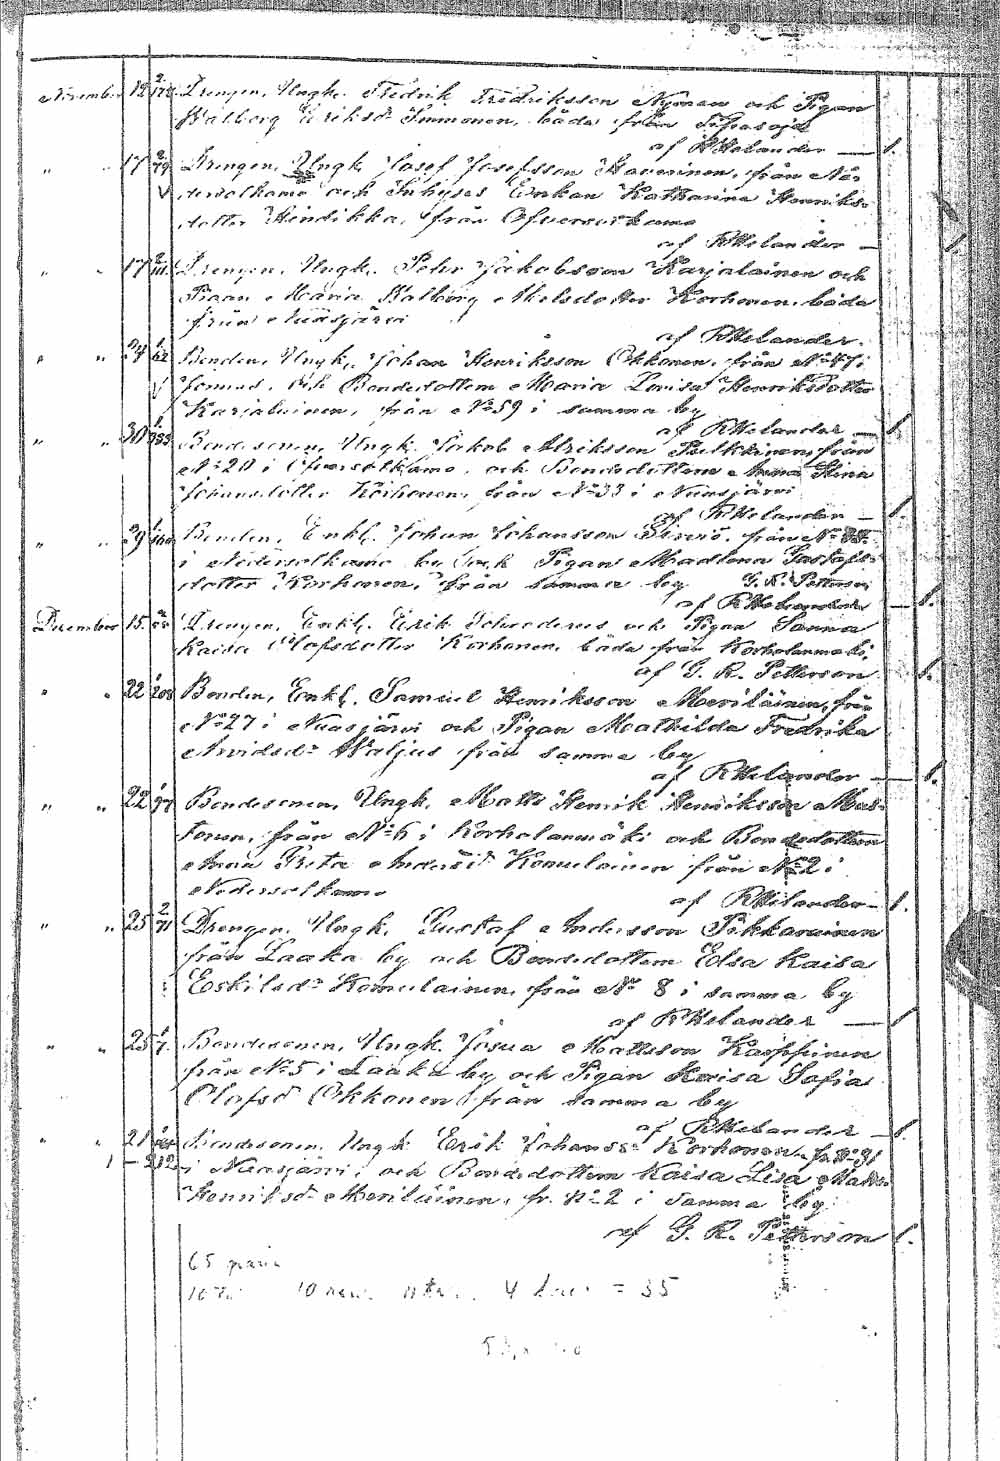 November 12 Drengen, Ungk. Fredrik Fredriksson Nyman och Pigan
Walborg Eriksdr Immonen, båda från
af RHelander — 1.
" " 17 2/79 Drengen, Ungk. Josef Josefsson Haverinen, från Ne-
dersotkamo och Inhyses Enkan Katharina Henriks-
dotter Hendikka, från Öfversotkamo
af RHelander — 1.
" " 17 2/111 Drengen, Ungk. Pehr Jakobsson Karjalainen och
Pigan Maria Walborg Abelsdotter Korhonen, båda
från Nuasjärvi
af RHelander.
" " 24 1/62 Bonden, Ungk. Johan Henriksson Okkonen, från No 47 i
Jormus, och Bondedottern Maria Lovisa Henriksdotter
Karjalainen, från No 59 i samma by
af RHelander — 1.
" " 30 Bondesonen, Ungk. Jakob Pulkkinen, från
No 20 i Öfversotkamo, och Bondedottern Anna Stina
Johansdotter Korhonen, från No 33 i Nuasjärvi
af RHelander — 1.
" " 29 1/160 Bonden, Enkl. Johan Johansson från No
i Nedersotkamo by och Pigan Madlena Gustafs-
dotter Korhonen, från samma by G. R. Petterson
af RHelander — 1.
December 15. Drengen, Enkl. Erik Schroderus och Pigan Sanna
Kaisa Olofsdotter Korhonen, båda från Korholanmäki,
af G. R. Petterson 1.
" " 22 1/208 Bonden, Enkl. Samuel Henriksson Meriläinen, från
No 27 i Nuasjärvi och Pigan Mathilda Fredrika
Arvidsdr Waljus från samma by
af RHelander — 1.
" " 22 1/97 Bondesonen, Ungk. Matts Henrik Henriksson Mus-
tonen, från No 6 i Korholanmäki och Bondedottern
Anna Greta Andersdr Komulainen från No 2 i
Nedersotkamo
af RHelander — 1.
" " 25 2/71 Drengen, Ungk. Gustaf Andersson Pikkarainen
från Laaka by och Bondedottern Edla Kaisa
Eskilsdr Komulainen, från No 8 i samma by
af RHelander — 1
" " 25 1/7. Bondesonen, Ungk. Josua Mattsson Karppinen
från No 5 i Laaka by och Pigan Kaisa Sofia
Olofsd Okkonen från samma by
af RHelander — 1.
" " 21 Bondesonen, Ungk Erik Johanss. Korhonen, fr. No 31
1 — 212 i Nuasjärvi, och Bondedottern Kaisa Lisa
Henriksdr Meriläinen, fr. No 2 i samma by
af G. R. Petterson 1.
65 paria
10 4 = 35